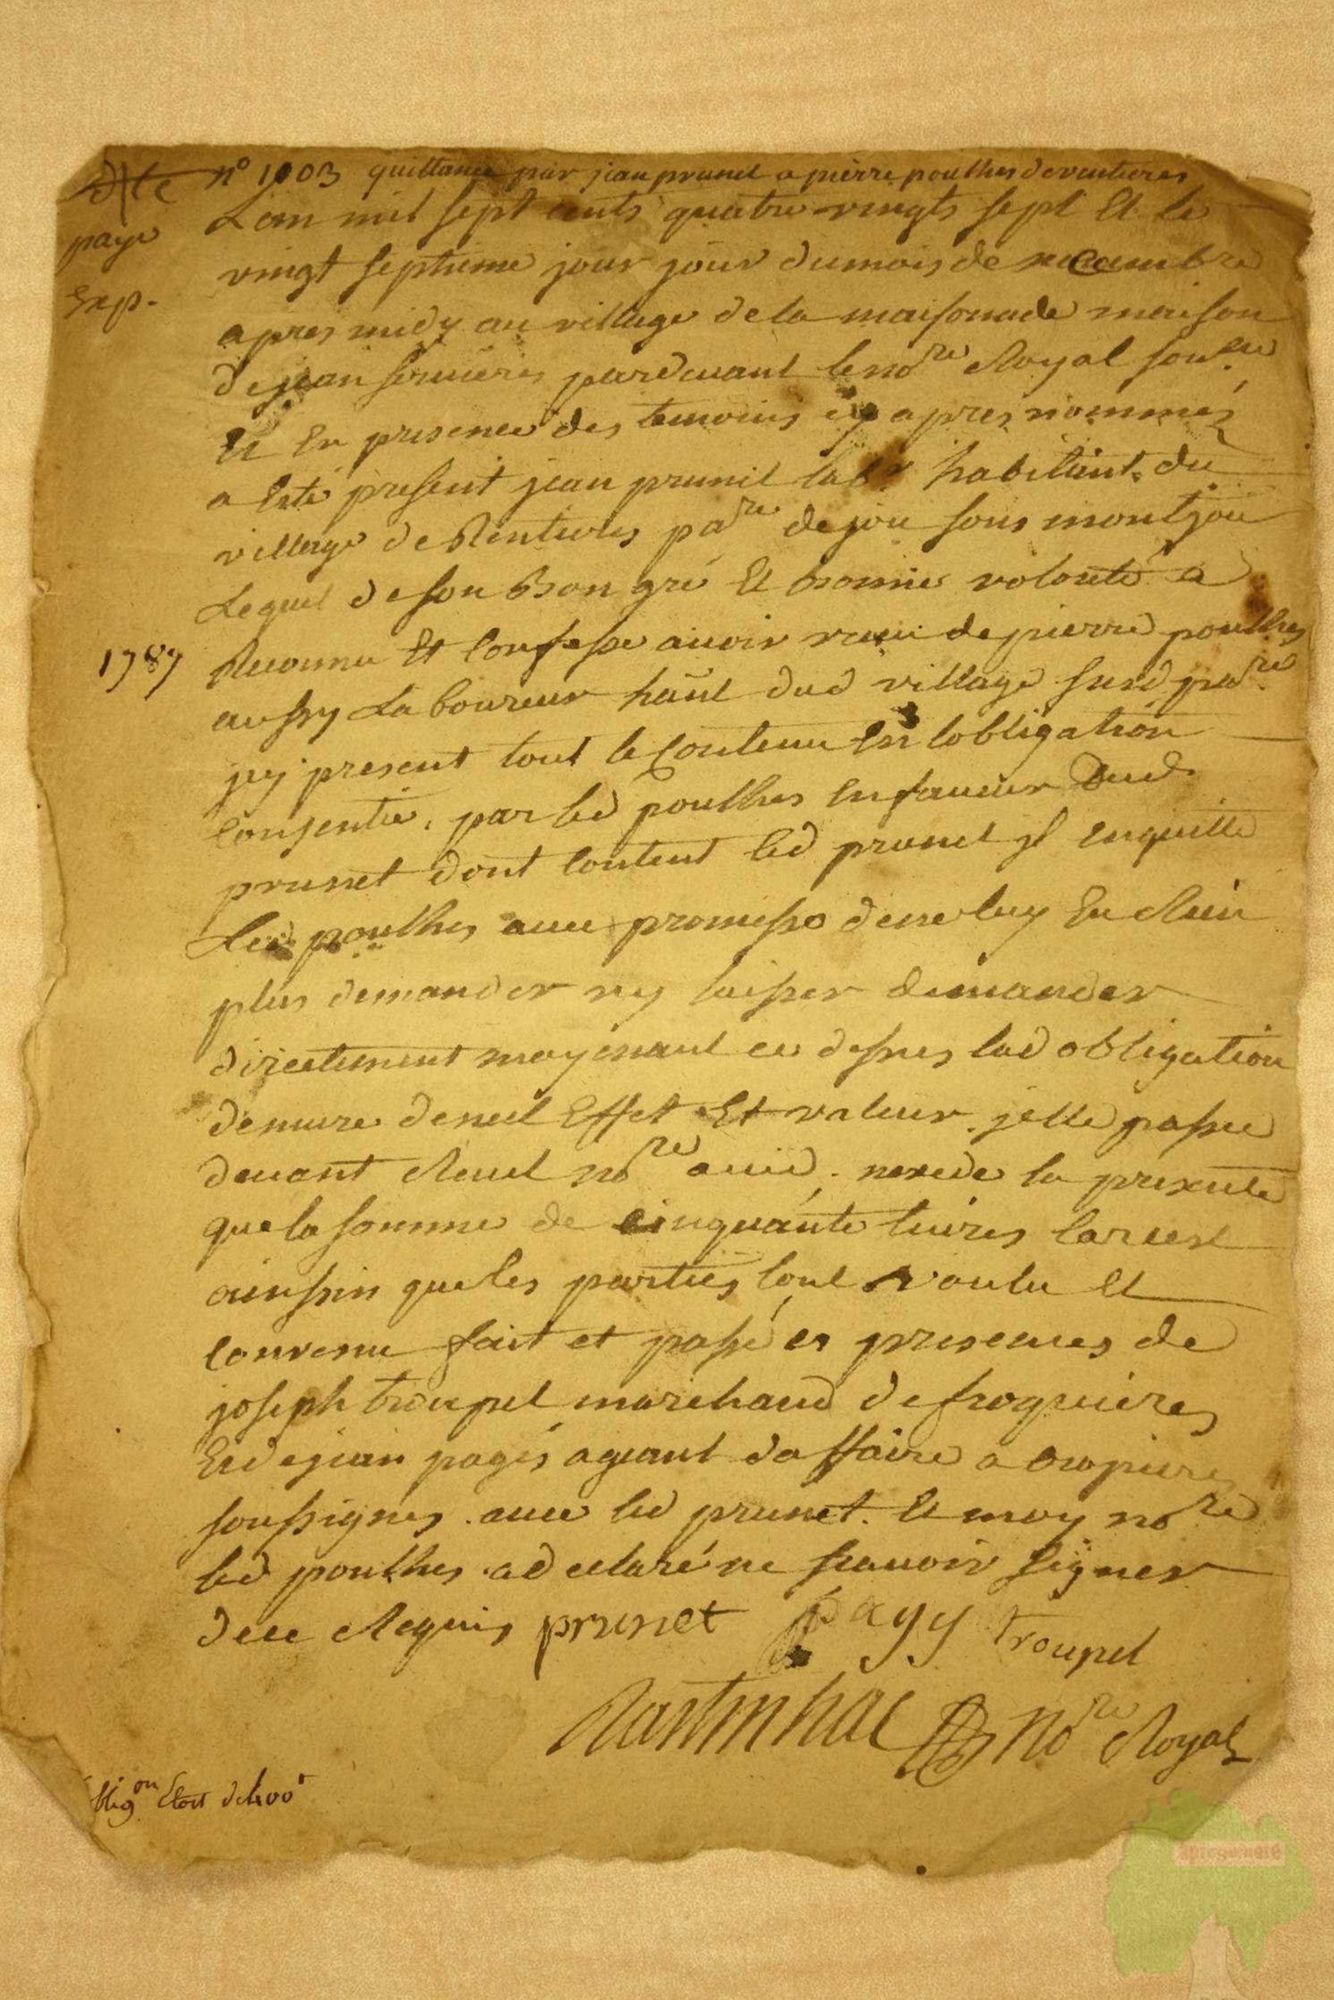 n° 1003 quittance par jean prunet a pierre poulhes de ventieres
dte
paye
Exp.
Lan mil sept cents quatre vingts sept Et le
vingt septieme jour jour du mois de
apres midy au village de la maisonade maison
de jean pardevant le no.re Royal sous.né
Et En presence des temoins cy apres nommés
a Esté present jean prunet lab.r habitant du
village de pa.re de jou sous montjou
Lequel de son Bon gré Et bonnes volonté a
Reconnu Et Confesse avoir receu de pierre poulhes
1787
aussy Laboureur ha'nt dud village susd pa.re
jcy present tout le Contenu En lobligation
consentie, par led poulhes En faveur Dud.
prunet dont Content led prunet jl En quitte
Led poulhes avec promesse de ne luy En Rien
plus demander ny laisser demander
directement moyenant ce dessus lad obligation
demure de nul Effet Et valeur. jcelle passee
devant Revel no.re avid. nexede la presente
que la somme de cinquante livres car cest
ainssin que les parties lont voulu Et
convenu fait et passé en presences de
joseph troupel marchand de froquieres
Et de jean pagés ageant daffaire a cropieres
soussignes. avec led prunet. Et moy no.re
led poulhes. a declaré ne scavoir signer
de ce Requis prunet pagy troupel
Rastinhac No.re Royal
blig.on Etoit de 400#